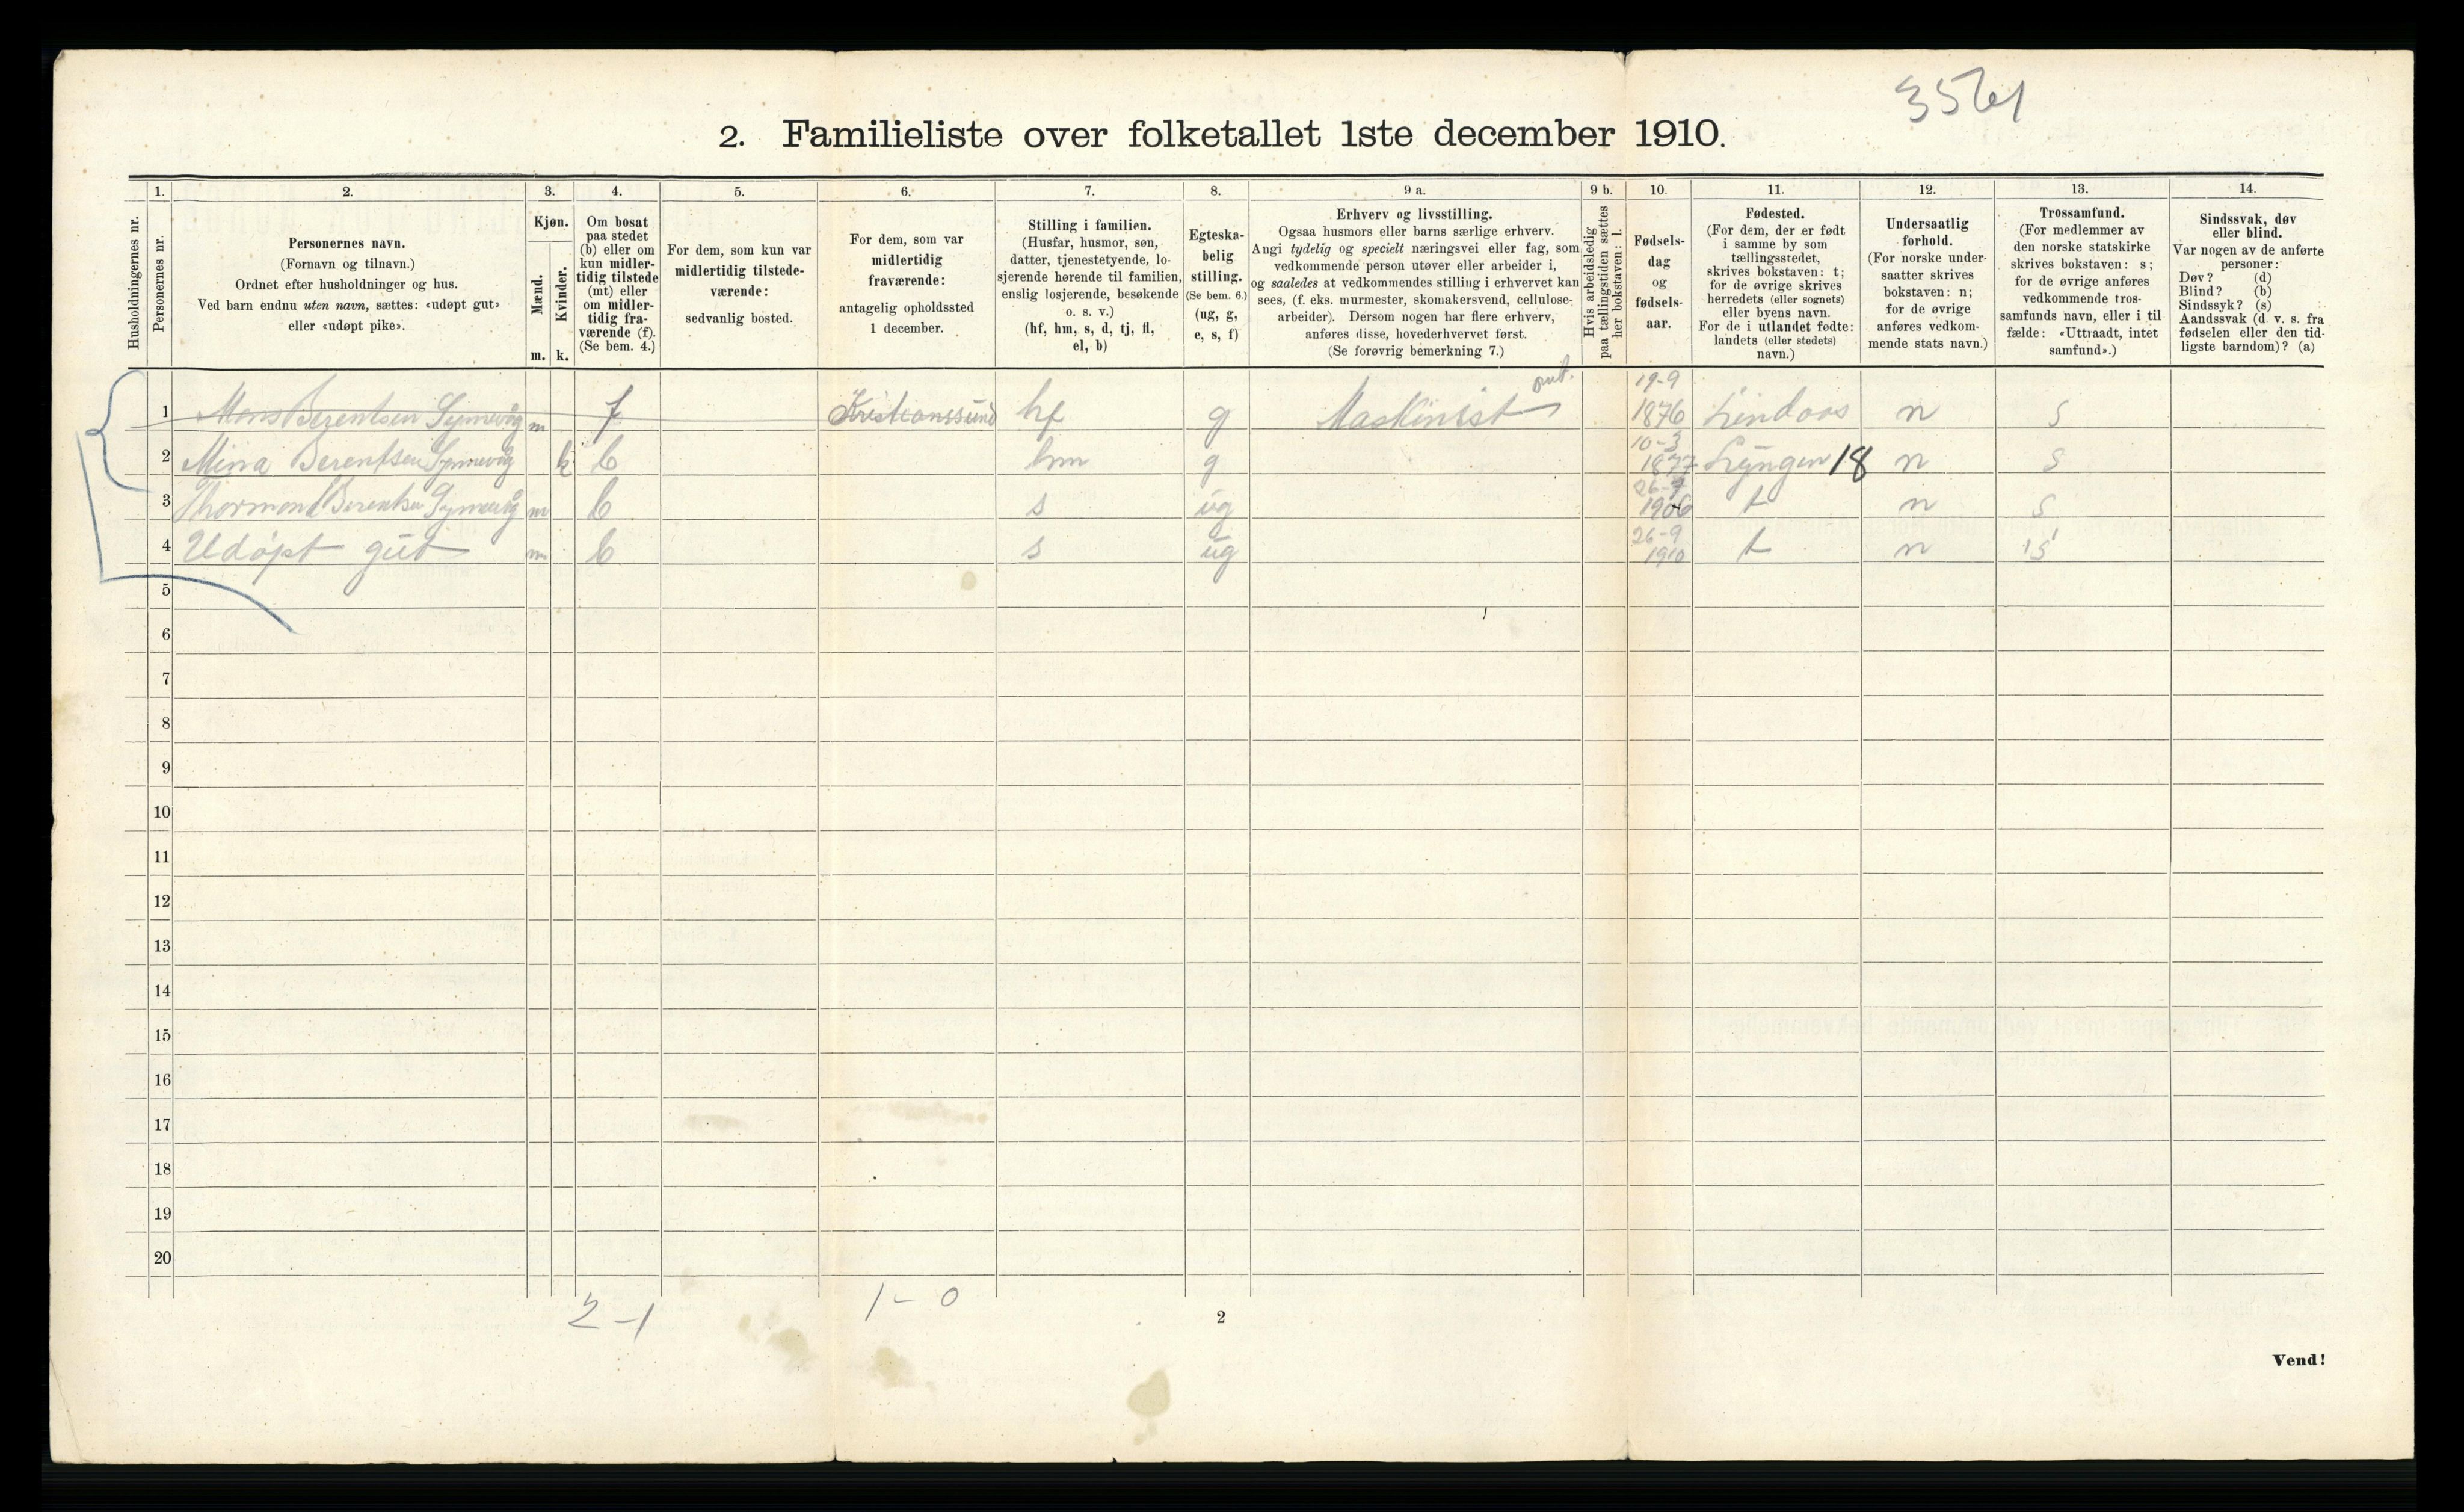 3561
2. Familieliste over folketallet 1ste december 1910.
1. 2. 3. 4. 5. 6. 7. 8. 9 a. 9 b. 10. 11. 12. 13. 14.
Husholdningernes nr.
Personernes nr.
Personernes navn.
(Fornavn og tilnavn.)
Ordnet efter husholdninger og hus.
Ved barn endnu uten navn, sættes: «udøpt gut»
eller «udøpt pike».
Kjøn.
Mænd.
Kvinder.
m. k.
Om bosat
paa stedet
(b) eller om
kun midler-
tidig tilstede
(mt) eller
om midler-
tidig fra-
værende (f).
(Se bem. 4.)
For dem, som kun var
midlertidig tilstede-
værende:
sedvanlig bosted.
For dem, som var
midlertidig
fraværende:
antagelig opholdssted
1 december.
Stilling i familien.
(Husfar, husmor, søn,
datter, tjenestetyende, lo-
sjerende hørende til familien,
enslig losjerende, besøkende
o. s. v.)
(hf, hm, s, d, tj, fl,
el, b)
Egteska-
belig
stilling.
(Se bem. 6.)
(ug, g,
e, s, f)
Erhverv og livsstilling.
Ogsaa husmors eller barns særlige erhverv.
Angi tydelig og specielt næringsvei eller fag, som
vedkommende person utøver eller arbeider i,
og saaledes at vedkommendes stilling i erhvervet kan
sees, (f. eks. murmester, skomakersvend, cellulose-
arbeider). Dersom nogen har flere erhverv,
anføres disse, hovederhvervet først.
(Se forøvrig bemerkning 7.)
Hvis arbeidsledig
paa tællingstiden sættes
her bokstaven: l.
Fødsels-
dag
og
fødsels-
aar.
Fødested.
(For dem, der er født
i samme by som
tællingsstedet,
skrives bokstaven: t;
for de øvrige skrives
herredets (eller sognets)
eller byens navn.
For de i utlandet fødte:
landets (eller stedets)
navn.)
Undersaatlig
forhold.
(For norske under-
saatter skrives
bokstaven: n;
for de øvrige
anføres vedkom-
mende stats navn.)
Trossamfund.
(For medlemmer av
den norske statskirke
skrives bokstaven: s;
for de øvrige anføres
vedkommende tros-
samfunds navn, eller i til
fælde: «Uttraadt, intet
samfund».)
Sindssvak, døv
eller blind.
Var nogen av de anførte
personer:
Døv? (d)
Blind? (b)
Sindssyk? (s)
Aandssvak (d. v. s. fra
fødselen eller den tid-
ligste barndom)? (a)
1 Mons Berentsen Synnevåg m f Kristianssund hf g Maskinist 19-9 1876 Lindaas n s
2 Mina Berentsen Synnevåg k b hm g 10-3 1877 Lyngen 18 n s
3 Thormond Berentsen Synnevåg m b s ug 1906 t n s
4 Udøpt gut m b s ug 26-9 1910 t n s
5
6
7
8
9
10
11
12
13
14
15
16
17
18
19
20
2-1 1-0
2
Vend!